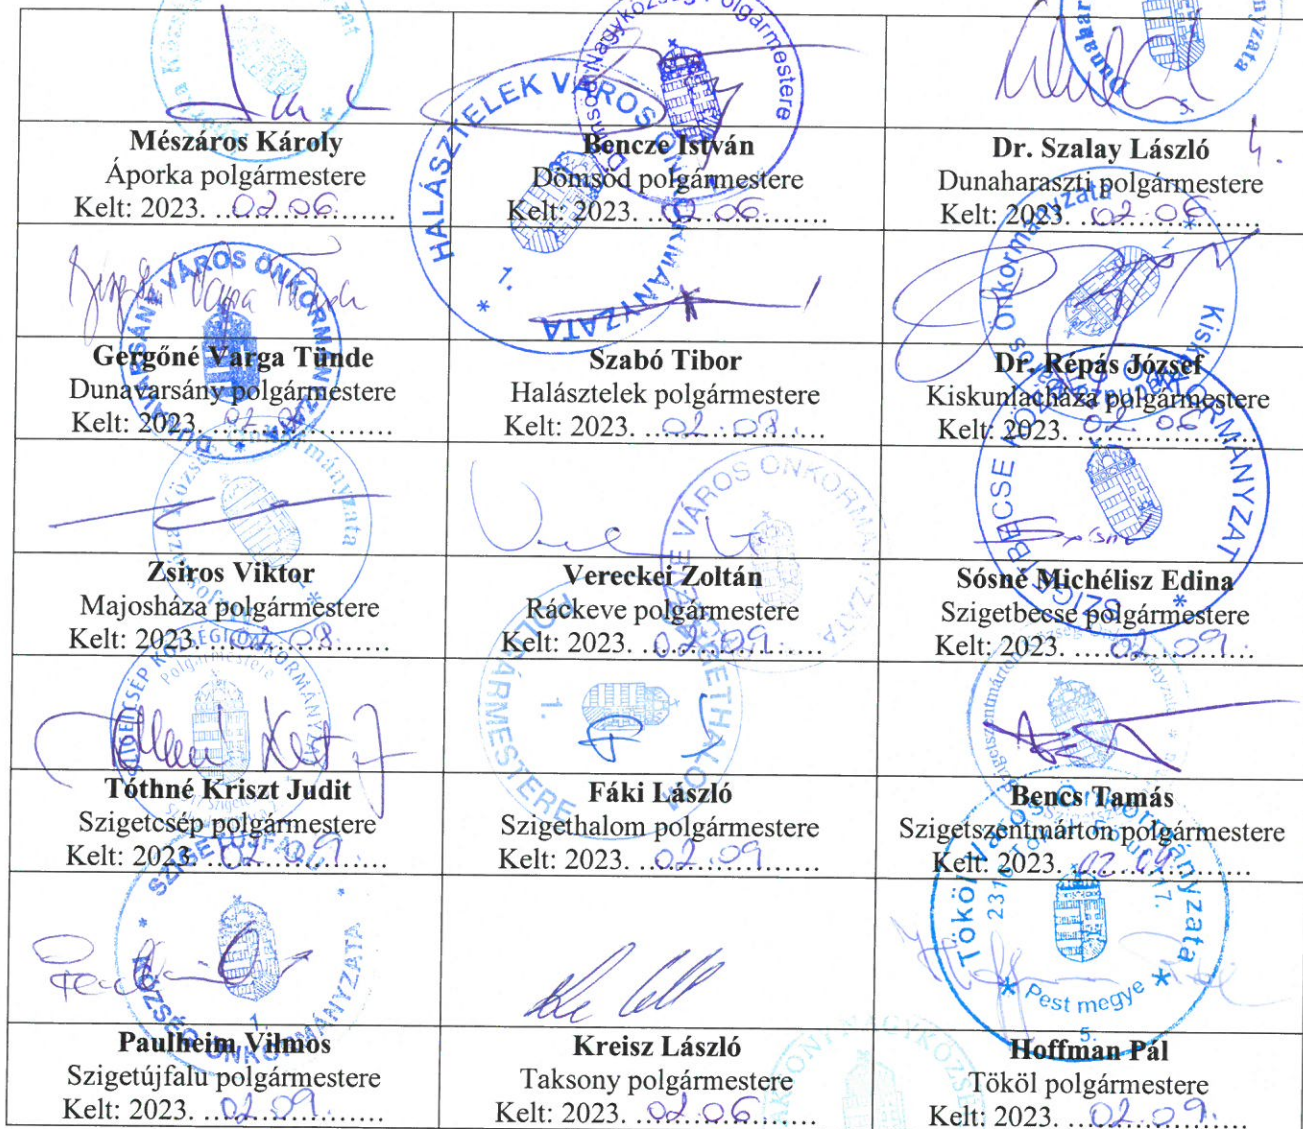 Mészáros Károly
Áporka polgármestere
Kelt: 2023. 02.06.
Bencze István
Dömsöd polgármestere
Kelt: 2023. 02.06.
Dr. Szalay László
Dunaharaszti polgármestere
Kelt: 2023. 02.06.
4.
Gergőné Varga Tünde
Dunavarsány polgármestere
Kelt: 2023. 02.
Szabó Tibor
Halásztelek polgármestere
Kelt: 2023. 02.08.
Dr. Répás József
Kiskunlacháza polgármestere
Kelt: 2023. 02.06.
Zsiros Viktor
Majosháza polgármestere
Kelt: 2023. 02.08.
Vereckei Zoltán
Ráckeve polgármestere
Kelt: 2023. 02.09.
Sósné Michélisz Edina
Szigetbecse polgármestere
Kelt: 2023. 02.09.
Tóthné Kriszt Judit
Szigetcsép polgármestere
Kelt: 2023. 02.09.
Fáki László
Szigethalom polgármestere
Kelt: 2023. 02.09
Bencs Tamás
Szigetszentmárton polgármestere
Kelt: 2023. 02.09.
Paulheim Vilmos
Szigetújfalu polgármestere
Kelt: 2023. 02.09.
Kreisz László
Taksony polgármestere
Kelt: 2023. 02.06.
Hoffman Pál
Tököl polgármestere
Kelt: 2023. 02.09.
HALÁSZTELEK VÁROS ÖNKORMÁNYZATA
1.
DUNAVARSÁNY VÁROS ÖNKORMÁNYZATA
SZIGETBECSE KÖZSÉG ÖNKORMÁNYZAT
SZIGETHALOM
POLGÁRMESTERE
1.
SZIGETÚJFALU
KÖZSÉG ÖNKORMÁNYZATA
1.
Tököl Város Önkormányzata
Pest megye
5.